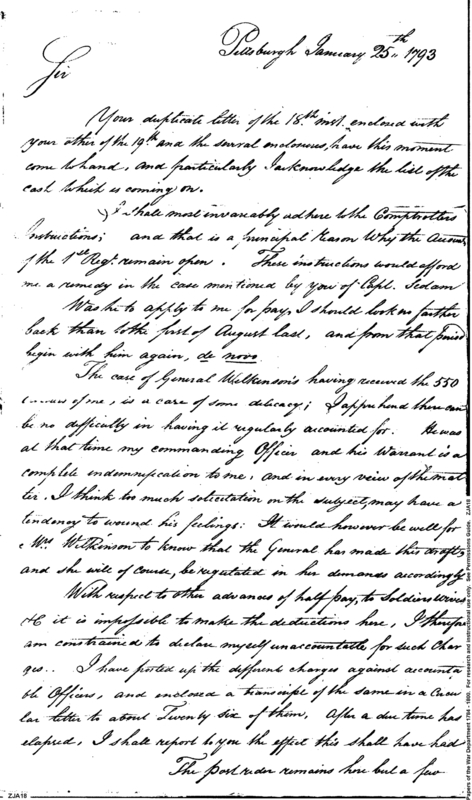 Pittsburgh January 25th 1793
Sir
Your duplicate letter of the 18th inst. enclosed with
your other of the 19th and the several enclosures, have this moment
come to hand, and particularly I acknowledge the list of the
cash which is coming on.
I shall most invariably adhere to the Comptrollers
Instructions; and that is a principal reason Why the Accounts
of the 1st Regt. remain open. These instructions would afford
me a remedy in the case mentioned by you of Capt. Sedam
Was he to apply to me for pay, I should look no farther
back than to the first of August last, and from that period
begin with him again, de novo
The case of General Wilkinson's having received the 550
of me, is a case of some delicacy; I apprehend there can
be no difficulty in having it regularly accounted for. He was
at that time my commanding Officer and his Warrant is a
complete indemnification to me, and in every veiw of the mat
ter, I think too much solicitation on the subject, may have a
tendency to wound his feelings: It would however be well for
Mrs. Wilkinson to know that the General has made this draft,
and she will of course, be regulated in her demands accordingly
With respect to other advances of half pay, to Soldiers Wives
&c it is impossible to make the deductions here, I therefore
am constrained to declare myself unaccountable for such Char
ges.. I have posted up the different charges against accounta
ble Officers, and enclosed a transcript of the same in a Circu
lar letter to about Twenty six of them, After a due time has
elapsed, I shall report to you the effect this shall have had
The post rider remains here but a few
ZJA18
Papers of the War Department 1784 - 1800. For research and instructional use only. See Permissions Guide. ZJA18